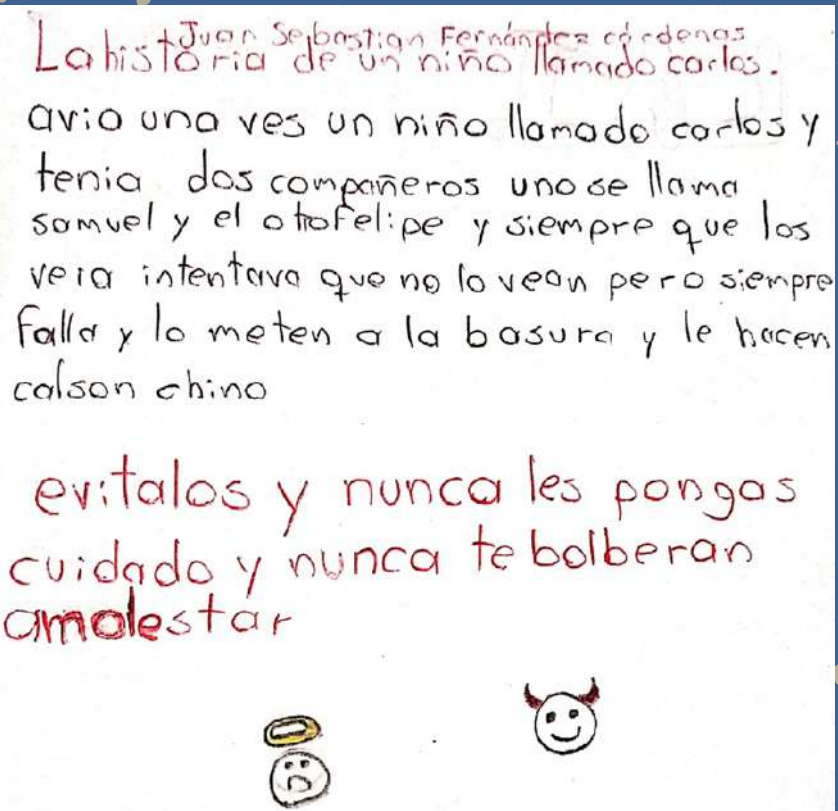 Juan Sebastian Fernández cárdenas
La historia de un niño llamado carlos.
avia una ves un niño llamado carlos y
tenia dos compañeros uno se llama
samuel y el otro Felipe y siempre que los
veia intentava que no lo vean pero siempre
falla y lo meten a la basura y le hacen
calson chino
evitalos y nunca les pongas
cuidado y nunca te bolberan
amolestar